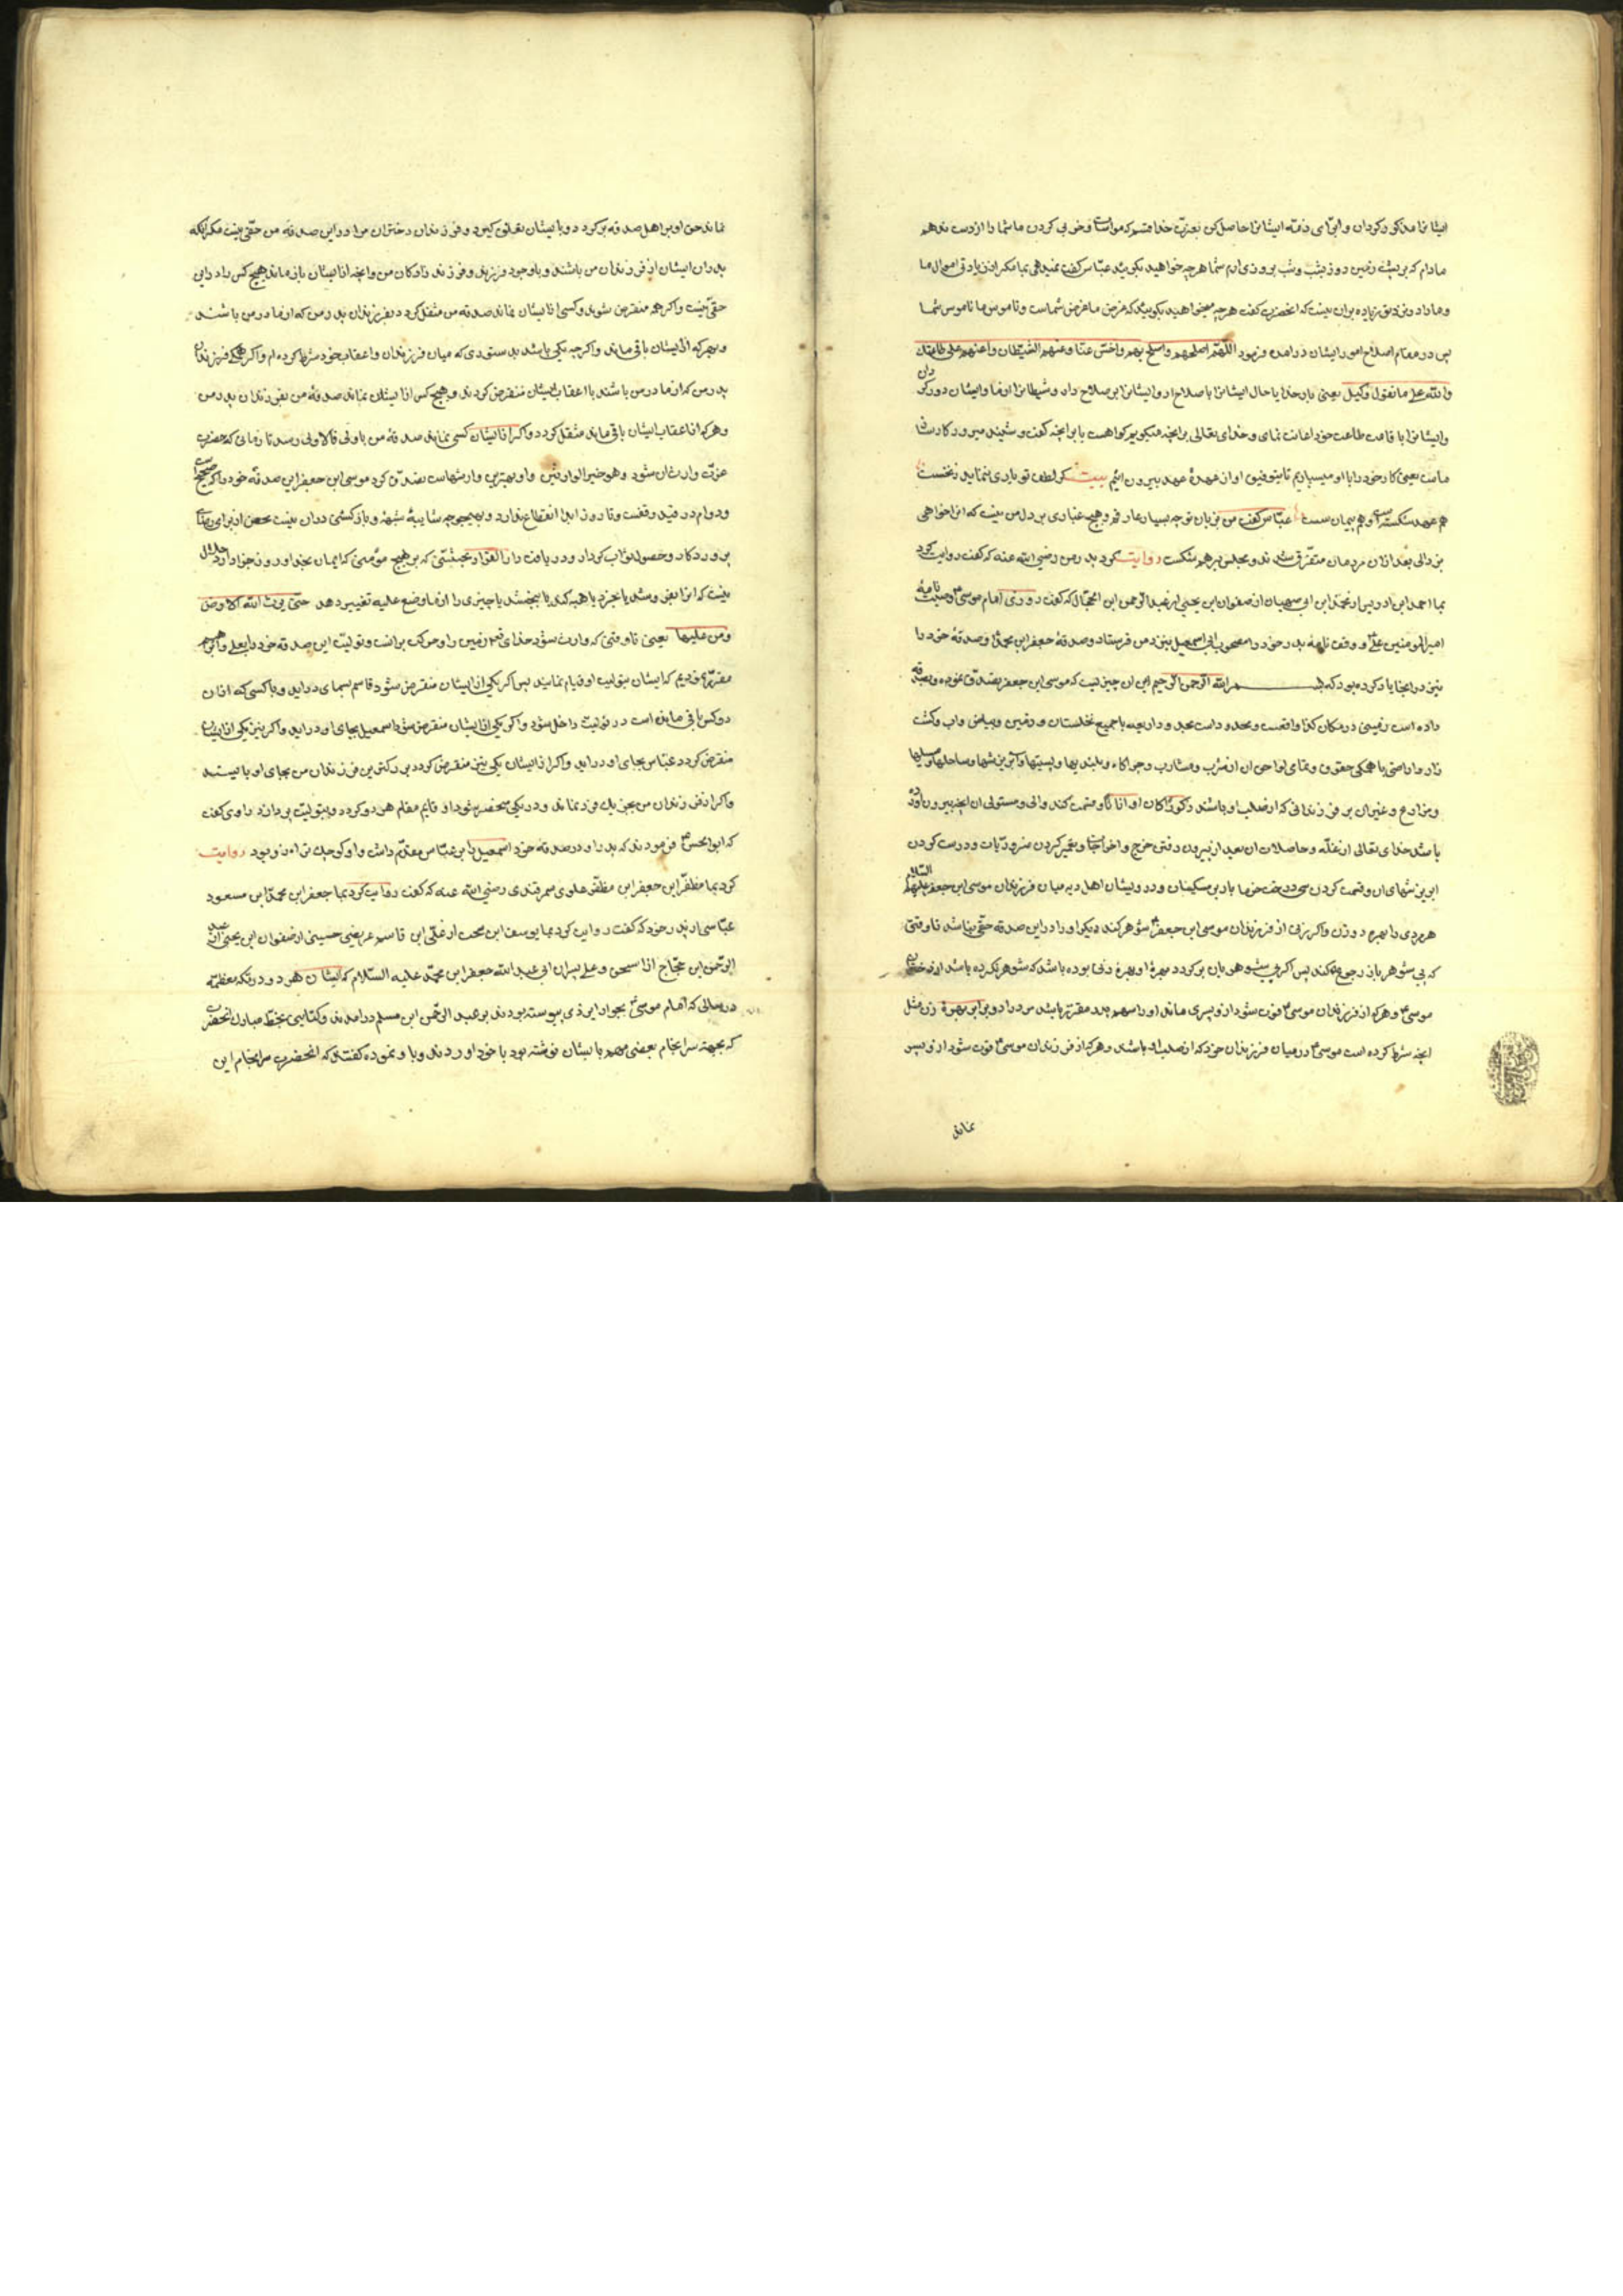 ایشانرا مذکور کردان و ابرای ذمّه ایشانرا حاصل کن بعزت خدا قسم که مواسات و خوبی کردن ما شما را از دست ندهم
مادام که بر پشت زمین روز بشب و شب بروز می ارم شما هر چه خواهید بکویید عباس کفت نمیدهی بما مکر از زیادتی اموال ما
و ما را در نزد تو زیاده بران نیست که انحضرت کفت هر چه میخواهید بکویید که عرض ما عرض شماست و ناموس ما ناموس شما
پس در مقام اصلاح امور ایشان درامده فرمود اللهّم اصلحهم و اصلح بهم و اخسَ عنّا و عنهم الشیطان و اعنهم علی طاعتک
والله علی ما نقول وکیل یعنی بار خدایا حال ایشانرا باصلاح ار و ایشانرا بر صلاح دار و شیطانرا از ما و ایشان دور کردان
و ایشانرا باقامت طاعت خود اعانت نمای و خدای تعالی بر انچه میکویم کواهست یا بر انچه کفت و شنید میرود کارساز
ماست یعنی کار خود را با او میسپاریم تا بتوفیق او از عهدهٔ عهد بیرون ائیم بیت کر لطف تو یاری ننماید نخست
هم عهد شکسته است و هم پیمان سست عباس کفت من بزبان تو چه بسیار عارفم و هیچ غباری بر دل من نیست که انرا خواهی
بزدائی بعد ازان مردمان متفرّق شدند و مجلس برهم شکست روایت کرد پدر من رضی الله عنه که کفت روایت کرد
بما احمد ابن ادریس از محمّد ابن ابی صهبان از صفوان ابن یحیی از عبدالرحمن ابن الحجّاج که کفت روزی امام موسی ع وصیت نامهٔ
امیر المؤمنین علی ع و وقف نامهٔ پدر خود را مصحوب ابی اسمعیل بنزد من فرستاد و صدقهٔ جعفر ابن محمّد ع و صدقهٔ خود را
نیز در انجا یاد کرده بود که بسم الله الرحمن الرحیم این ان چیزیست که موسی ابن جعفر تصدّق نموده و صدقه
داده است زمینی در مکان کذا واقعست و محدود است بحدود اربعه با جمیع نخلستان و زمین و بیاض و اب و کشت
زار و اراضی با همکی حقوق و تمامی نواحی ان از شرب و مشارب و چراکاه و بلندیها و پستیها و
و مزارع و غیران بر فرزندانی که از صلب او باشند ذکور کان او اناثا و قسمت کند والی و متولی ان انچه بیرون اورده
باشد خدای تعالی از غلّه و حاصلات ان بعد از بیرون رفتن خرج و اخراجات و تعمیر کردن ضروریات و درست کردن
و قسمت کردن سی درخت خرما بار بر مسکینان و درویشان اهل دیه میان فرزندان موسی ابن جعفر علیهما السلام
هر مردی را بهره دو زن و اکر زنی از فرزندان موسی ابن جعفر ع شوهر کند دیکر او را در این صدقه حقّی نباشد تا وقتی
که بی شوهر باز رجوع کند پس اکر بی شوهر باز کردد بهرهٔ او بهرهٔ زنی بوده باشد که شوهر نکرده باشد از دختران
موسی ع و هر که از فرزندان موسی ع فوت شود از و پسری ماند او را سهم پدر مقرّر باشد مرد را دو برابر بهرهٔ زن مثل
انچه شرط کرده است موسی ع در میان فرزندان خود که از صلب او باشند و هر که از فرزندان موسی ع فوت شود از و پسر
نماند
نماند حق او بر اهل صدقه بر کردد و با ایشان تعلق کیرد و فرزندان دختران مرا در این صدقه من حقّی نیست مکر انکه
پدران ایشان از فرزندان من باشند و با وجود فرزند و فرزند زادکان من و انچه از ایشان باز ماند هیچ کس را در این
حقّی نیست و اکر همه منقرض شوند و کسی از ایشان نماند صدقه من منتقل کردد بفرزندان پدر من که از مادر من باشند
و بهر که از ایشان باقی ماند و اکر چه یکی باشد بدستوری که میان فرزندان و اعقاب خود شرط کرده ام و اکر همکی فرزندان
پدر من که از مادر من باشند با اعقاب ایشان منقرض کردند و هیچ کس از ایشان نماند صدقهٔ من بفرزندان پدر من
و هر که از اعقاب ایشان باقی ماند منتقل کردد و اکر از ایشان کسی نماند صدقه من باولی فالاولی رسد تا زمانی که حضرت
عزّت وارث ان شود و هو خیر الوارثین و او بهترین وارثهاست تصدّق کرد موسی ابن جعفر این صدقه خود را که صحیح است
و دوام در قید وقفست و تا روز ابد انقطاع ندارد و بهیچوجه شایبهٔ شبهه و بازکشتی دران نیست محض از برای رضای
پروردکار و حصول ثواب کردار و دریافت دار القرار بخششی که بر هیچ مؤمنی که ایمان بخدا و روز جزا دارد حلال
نیست که انرا بفروشد یا بخرد یا هبه کند یا ببخشد یا چیزی را از ما وضع علیه تغییر دهد حتی یرث الله الارض
و من علیها یعنی تا وقتی که وارث شود خدای زمین را و هر که بر انست و تولیت این صدقه خود را بعلی و ابراهیم
مقرّر کردیم که ایشان بتولیت او قیام نمایند پس اکر یکی از ایشان منقرض شود قاسم بجای او دراید و با کسی که از ان
دو کس باقی مانده است در تولیت داخل شود و اکر یکی از ایشان منقرض شود اسمعیل بجای او دراید و اکر نیز یکی از ایشان
منقرض کردد عباس بجای او دراید و اکر از ایشان یکی نیز منقرض کردد بزرکترین فرزندان من بجای او بایستد
و اکر از فرزندان من بجز یک فرد نماند و در یکی منحصر شود او قایم مقام هر دو کردد و بتولیت پردازد راوی کفت
که ابوالحسن ع فرمودند که پدر او در صدقه خود اسمعیل را بر عباس مقدّم داشت و او کوچک تر از و بود روایت
کرد بما مظفّر ابن جعفر ابن مظفّر علوی سمرقندی رضی الله عنه که کفت روایت کرد بما جعفر ابن محمّد ابن مسعود
عیّاشی از پدر خود که کفت روایت کرد بما یوسف ابن سخت از علی ابن قاسم عریضی حسینی از صفوان ابن یحیی از عبد
الرحمن ابن حجّاج از اسحق و علی پسران ابی عبد الله جعفر ابن محمّد علیه السلام که ایشان هر دو در مکه معظمه
در سالی که امام موسی ع بجوار ایزدی پیوسته بودند بر عبد الرحمن ابن مسلم درامدند و کتابتی بخط مبارک انحضرت
که بجهة سرانجام بعضی مهم بایشان نوشته بود با خود اوردند و باو نموده کفتند که انحضرت سرانجام این